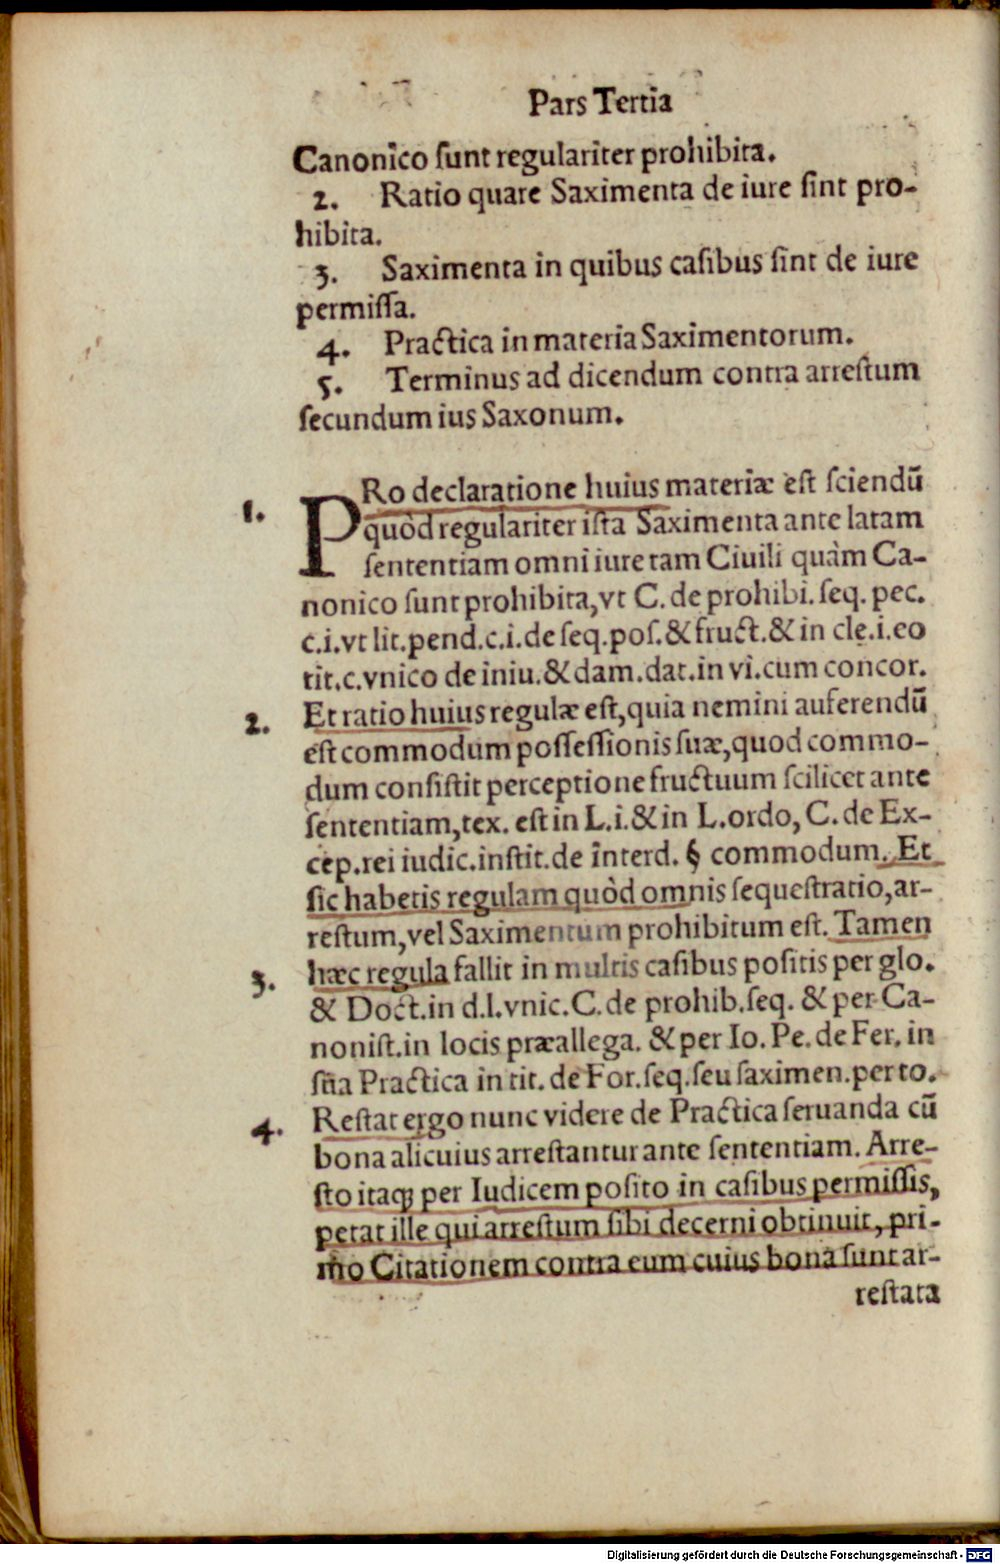 Pars Tertia
Canonico ſunt regulariter prohibita.
2. Ratio quare Saximenta de iure ſint pro-
hibita.
3. Saximenta in quibus caſibus ſint de iure
permiſſa.
4. Practica in materia Saximentorum.
5. Terminus ad dicendum contra arreſtum
ſecundum ius Saxonum.
1. PRo declaratione huius materiæ eſt ſciendū
quòd regulariter iſta Saximenta ante latam
ſententiam omni iure tam Ciuili quàm Ca-
nonico ſunt prohibita, vt C. de prohibi. ſeq. pec.
c.i. vt lit. pend. c.i. de ſeq. poſ. & fruct. & in cle. i. eo
tit. c. vnico de iniu. & dam. dat. in vi. cum concor.
2. Et ratio huius regulæ eſt, quia nemini auferendū
eſt commodum poſſeſſionis ſuæ, quod commo-
dum conſiſtit perceptione fructuum ſcilicet ante
ſententiam, tex. eſt in L. i. & in L. ordo, C. de Ex-
cep. rei iudic. inſtit. de interd. § commodum. Et
ſic habetis regulam quòd omnis ſequeſtratio, ar-
reſtum, vel Saximentum prohibitum eſt. Tamen
3. hæc regula fallit in multis caſibus poſitis per glo.
& Doct. in d. l. vnic. C. de prohib. ſeq. & per Ca-
noniſt. in locis præallega. & per Io. Pe. de Fer. in
ſūa Practica in tit. de For. ſeq. ſeu ſaximen. per to.
4. Reſtat ergo nunc videre de Practica ſeruanda cū
bona alicuius arreſtantur ante ſententiam. Arre-
ſto itaq; per Iudicem poſito in caſibus permiſſis,
petat ille qui arreſtum ſibi decerni obtinuit, pri-
mo Citationem contra eum cuius bona ſunt ar-
reſtata
Digitalisierung gefördert durch die Deutsche Forschungsgemeinschaft - DFG